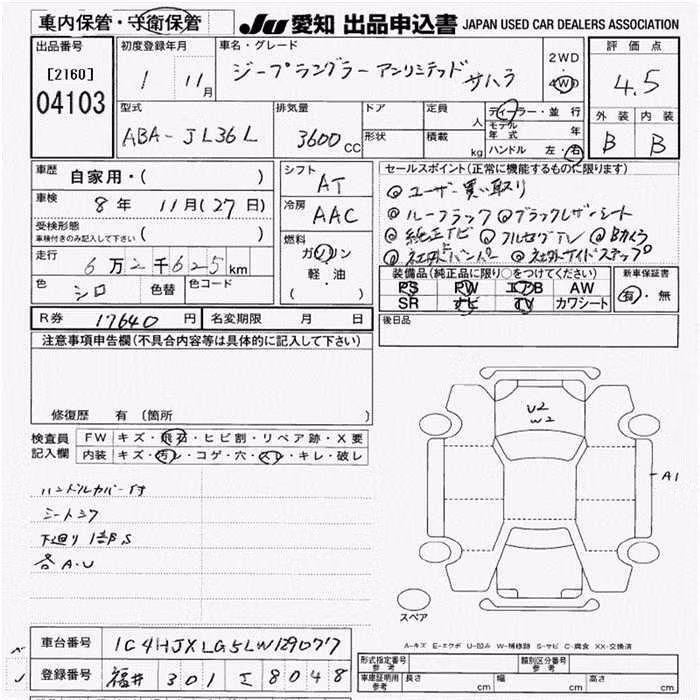 車内保管・守衛保管 JU 愛知 出品申込書 JAPAN USED CAR DEALERS ASSOCIATION
出品番号 [2160] 04103
初度登録年月 1 11月
車名・グレード ジープラングラーアンリミテッド サハラ
2WD 4WD
評価点 4.5
外装 内装
B B
型式 ABA-JL36L
排気量 3600cc
ドア 定員 人
形状 積載 kg
ディーラー・並行
モデル年式 年
ハンドル 左・右
車歴 自家用・( )
車検 8年 11月(27日)
受検形態 車検付きのみ記入して下さい ( )
走行 6万2千625km
色 シロ 色替 色コード
シフト AT
冷房 AAC
燃料 ガソリン 軽・油 ( )
セールスポイント(正常に機能するものに限ります)
◎ユーザー買い取り
◎ルーフラック ◎ブラックレザーシート
◎純正ナビ ◎フルセグTV ◎Bカメラ
◎社外バンパー ◎社外サイドステップ
装備品(純正品に限り○をつけてください)
PS PW エアB AW
SR ナビ TV カワシート
新車保証書 有・無
R券 17640円 名変期限 月 日
後日品
注意事項申告欄(不具合内容等は具体的に記入して下さい)
修復歴 有(箇所 )
検査員記入欄
FW キズ・飛石・ヒビ割・リペア跡・X要
内装 キズ・汚レ・コゲ・穴・スレ・キレ・破レ
ハンドルカバー付
シートシワ
下廻り1部S
各A.U
U2
W2
A1
スペア
A-キズ E-エクボ U-凹み W-補修跡 S-サビ C-腐食 XX-交換済
車台番号 1C4HJXLG5LW129077
登録番号 福井 301 エ 8048
形式指定番号 参考 類別区分番号 参考
車庫証明用 参考 長さ cm 幅 cm 高さ cm